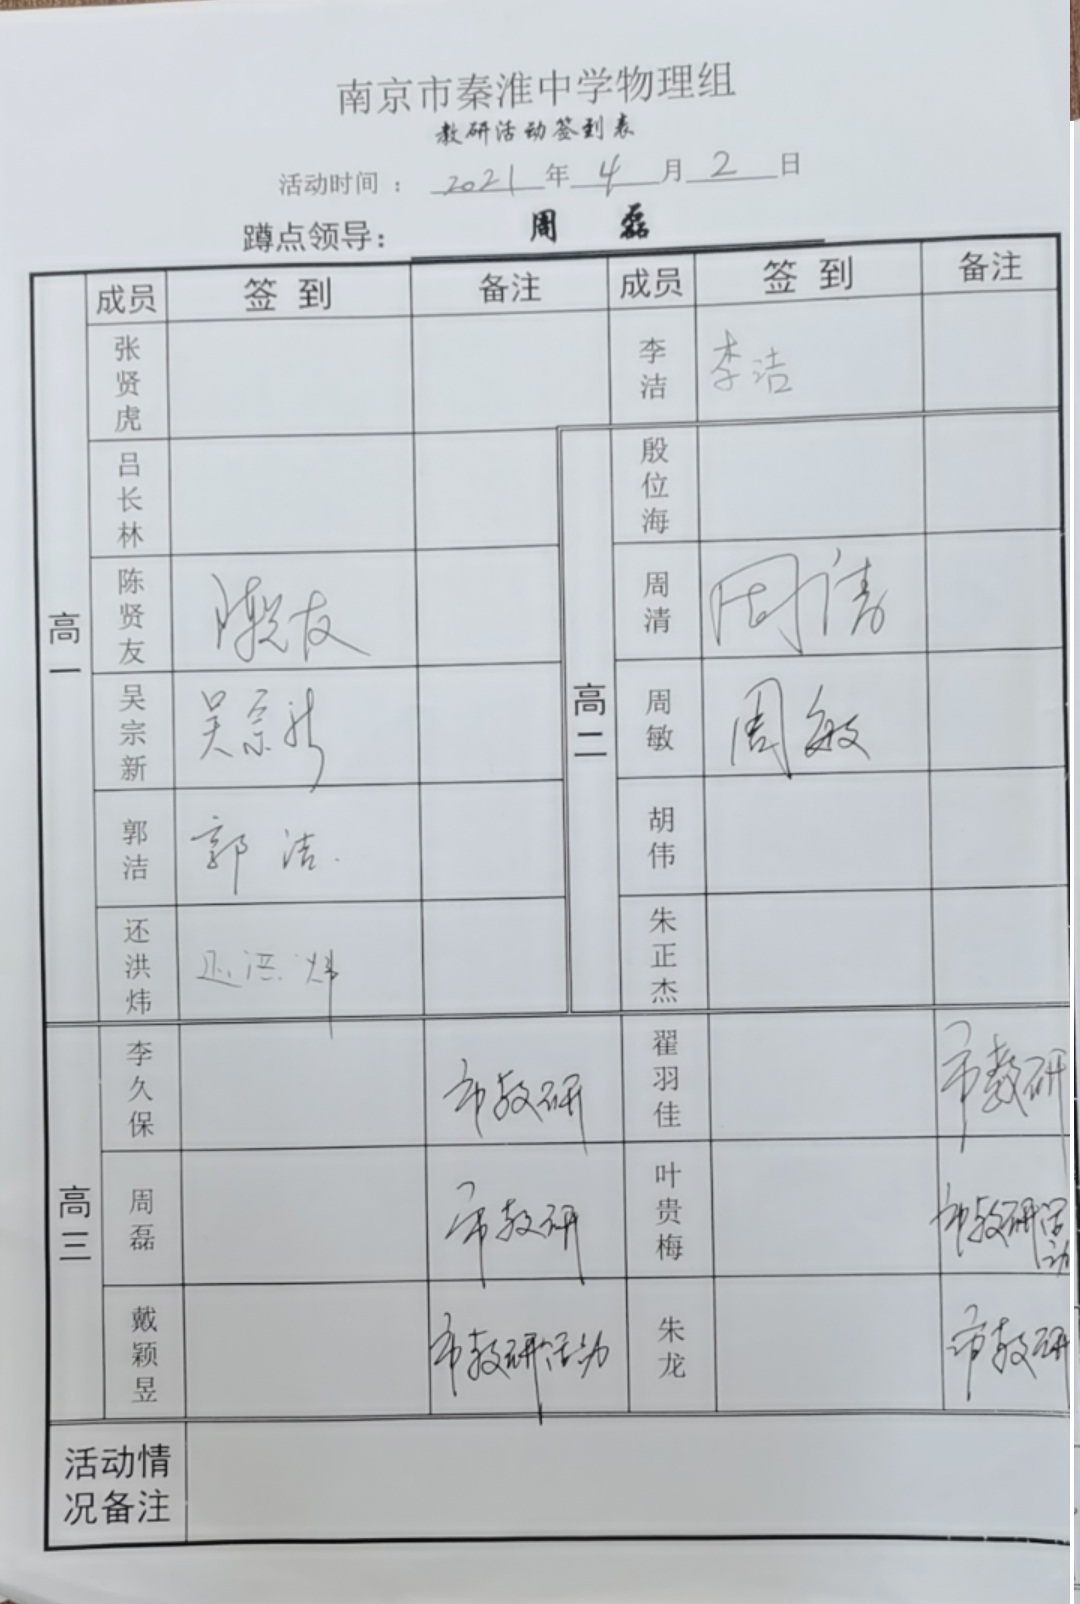 南京市秦淮中学物理组
教研活动签到表
活动时间： 2021年4月2日
蹲点领导： 周 磊
成员 签到 备注 成员 签到 备注
高一
张贤虎
李洁 李洁
吕长林
陈贤友 陈贤友
吴宗新 吴宗新
郭洁 郭洁.
还洪炜 还洪炜
高二
殷位海
周清 周清
周敏 周敏
胡伟
朱正杰
高三
李久保 市教研
翟羽佳 市教研
周磊 市教研
叶贵梅 市教研活动
戴颖昱 市教研活动
朱龙 市教研
活动情况备注